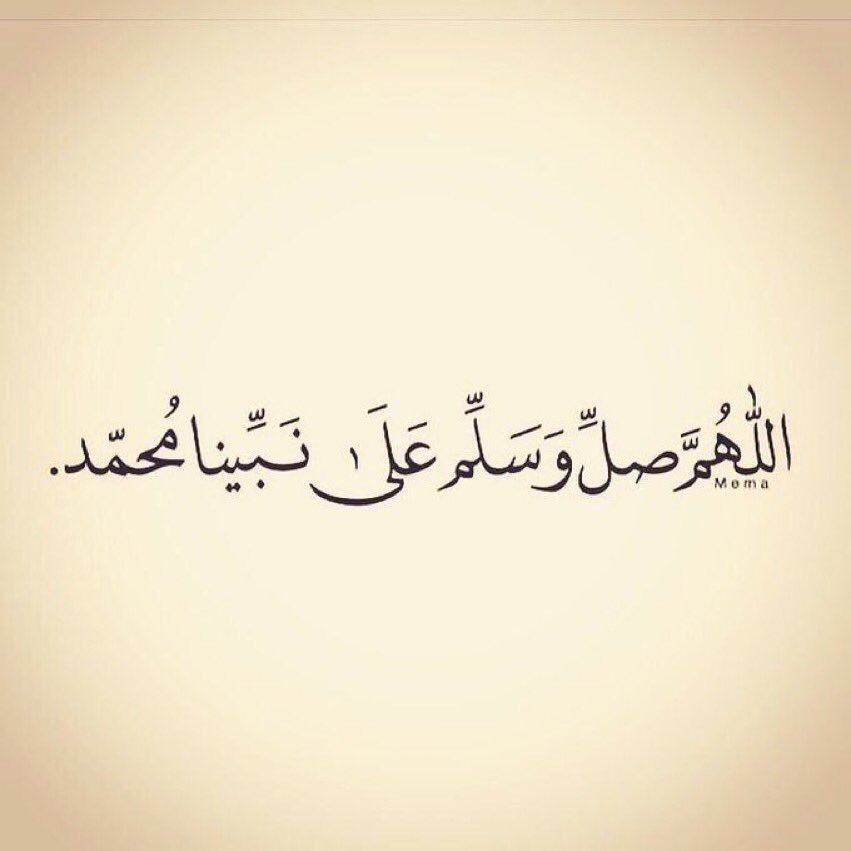 اللّٰهُمَّ صلِّ وَسَلِّم عَلَىٰ نَبِّينا مُحمّد.
Mema